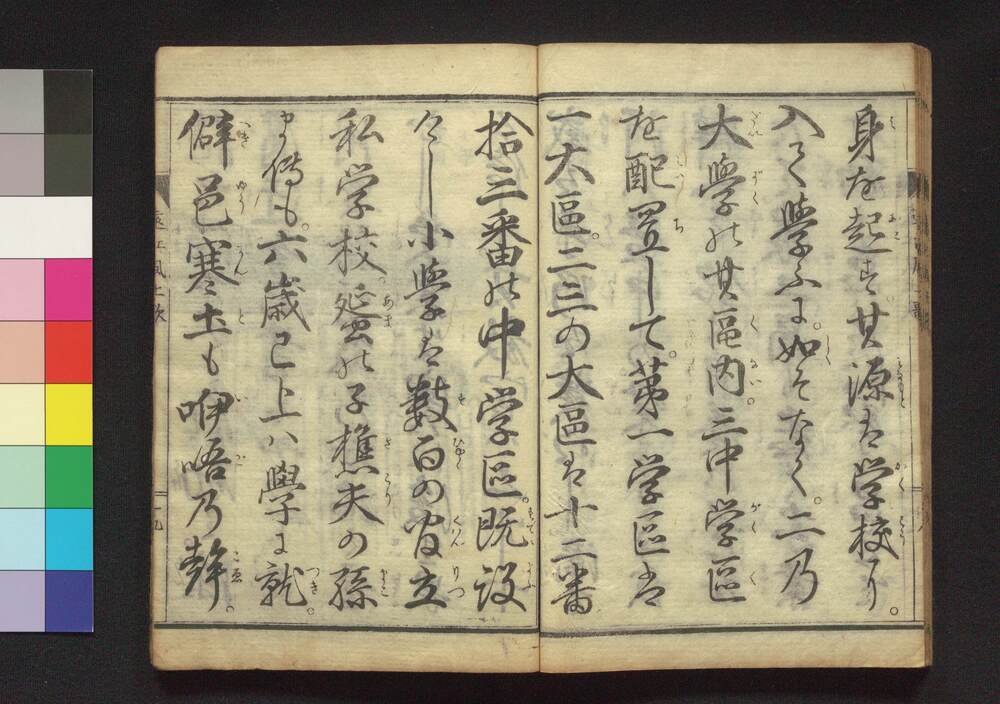 身を起す其源は学校に。
入て学ふに如そなく。二乃
大學の其區内。三中学区
を配置して。第一学区は
一大區。二三の大区は十二番
拾三番の中学区。既設
々し小学は数百の官立
私学校。蜑の子樵夫の孫
まても六歳已上ハ學に就。
僻邑寒土も咿唔乃声。